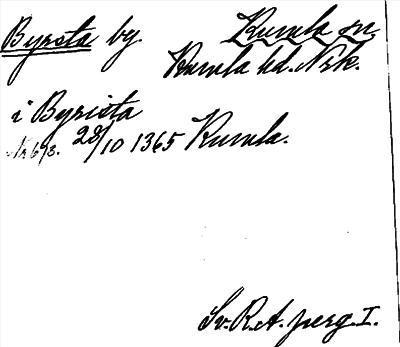 Byrsta by. Kumla sn
Kumla hd. Nrk.
i Byrista
Nr 693. 28/10 1365 Kumla.
Sv. R.A. perg. I.